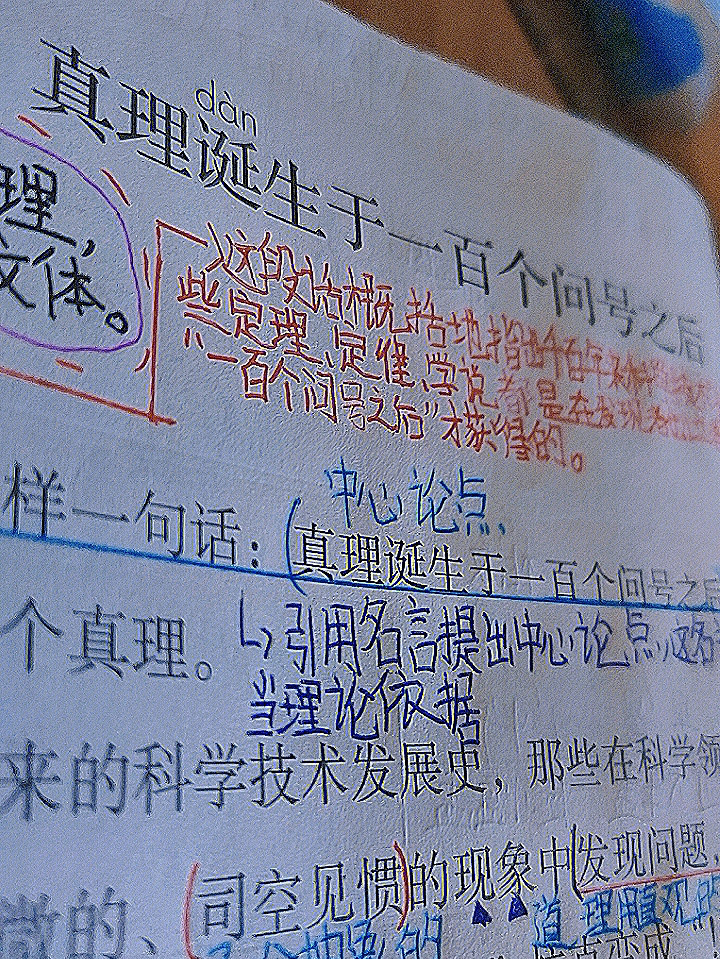 dàn
真理诞生于一百个问号之后
理,
文体。
这段话概括地指出千百年来
些定理、定律、学说都是在发现
“一百个问号之后”才获得的。
中心论点
样一句话：真理诞生于一百个问号之后
个真理。
引用名言提出中心论点,这名
当理论依据
来的科学技术发展史，那些在科学领
微的、司空见惯的现象中发现问题，